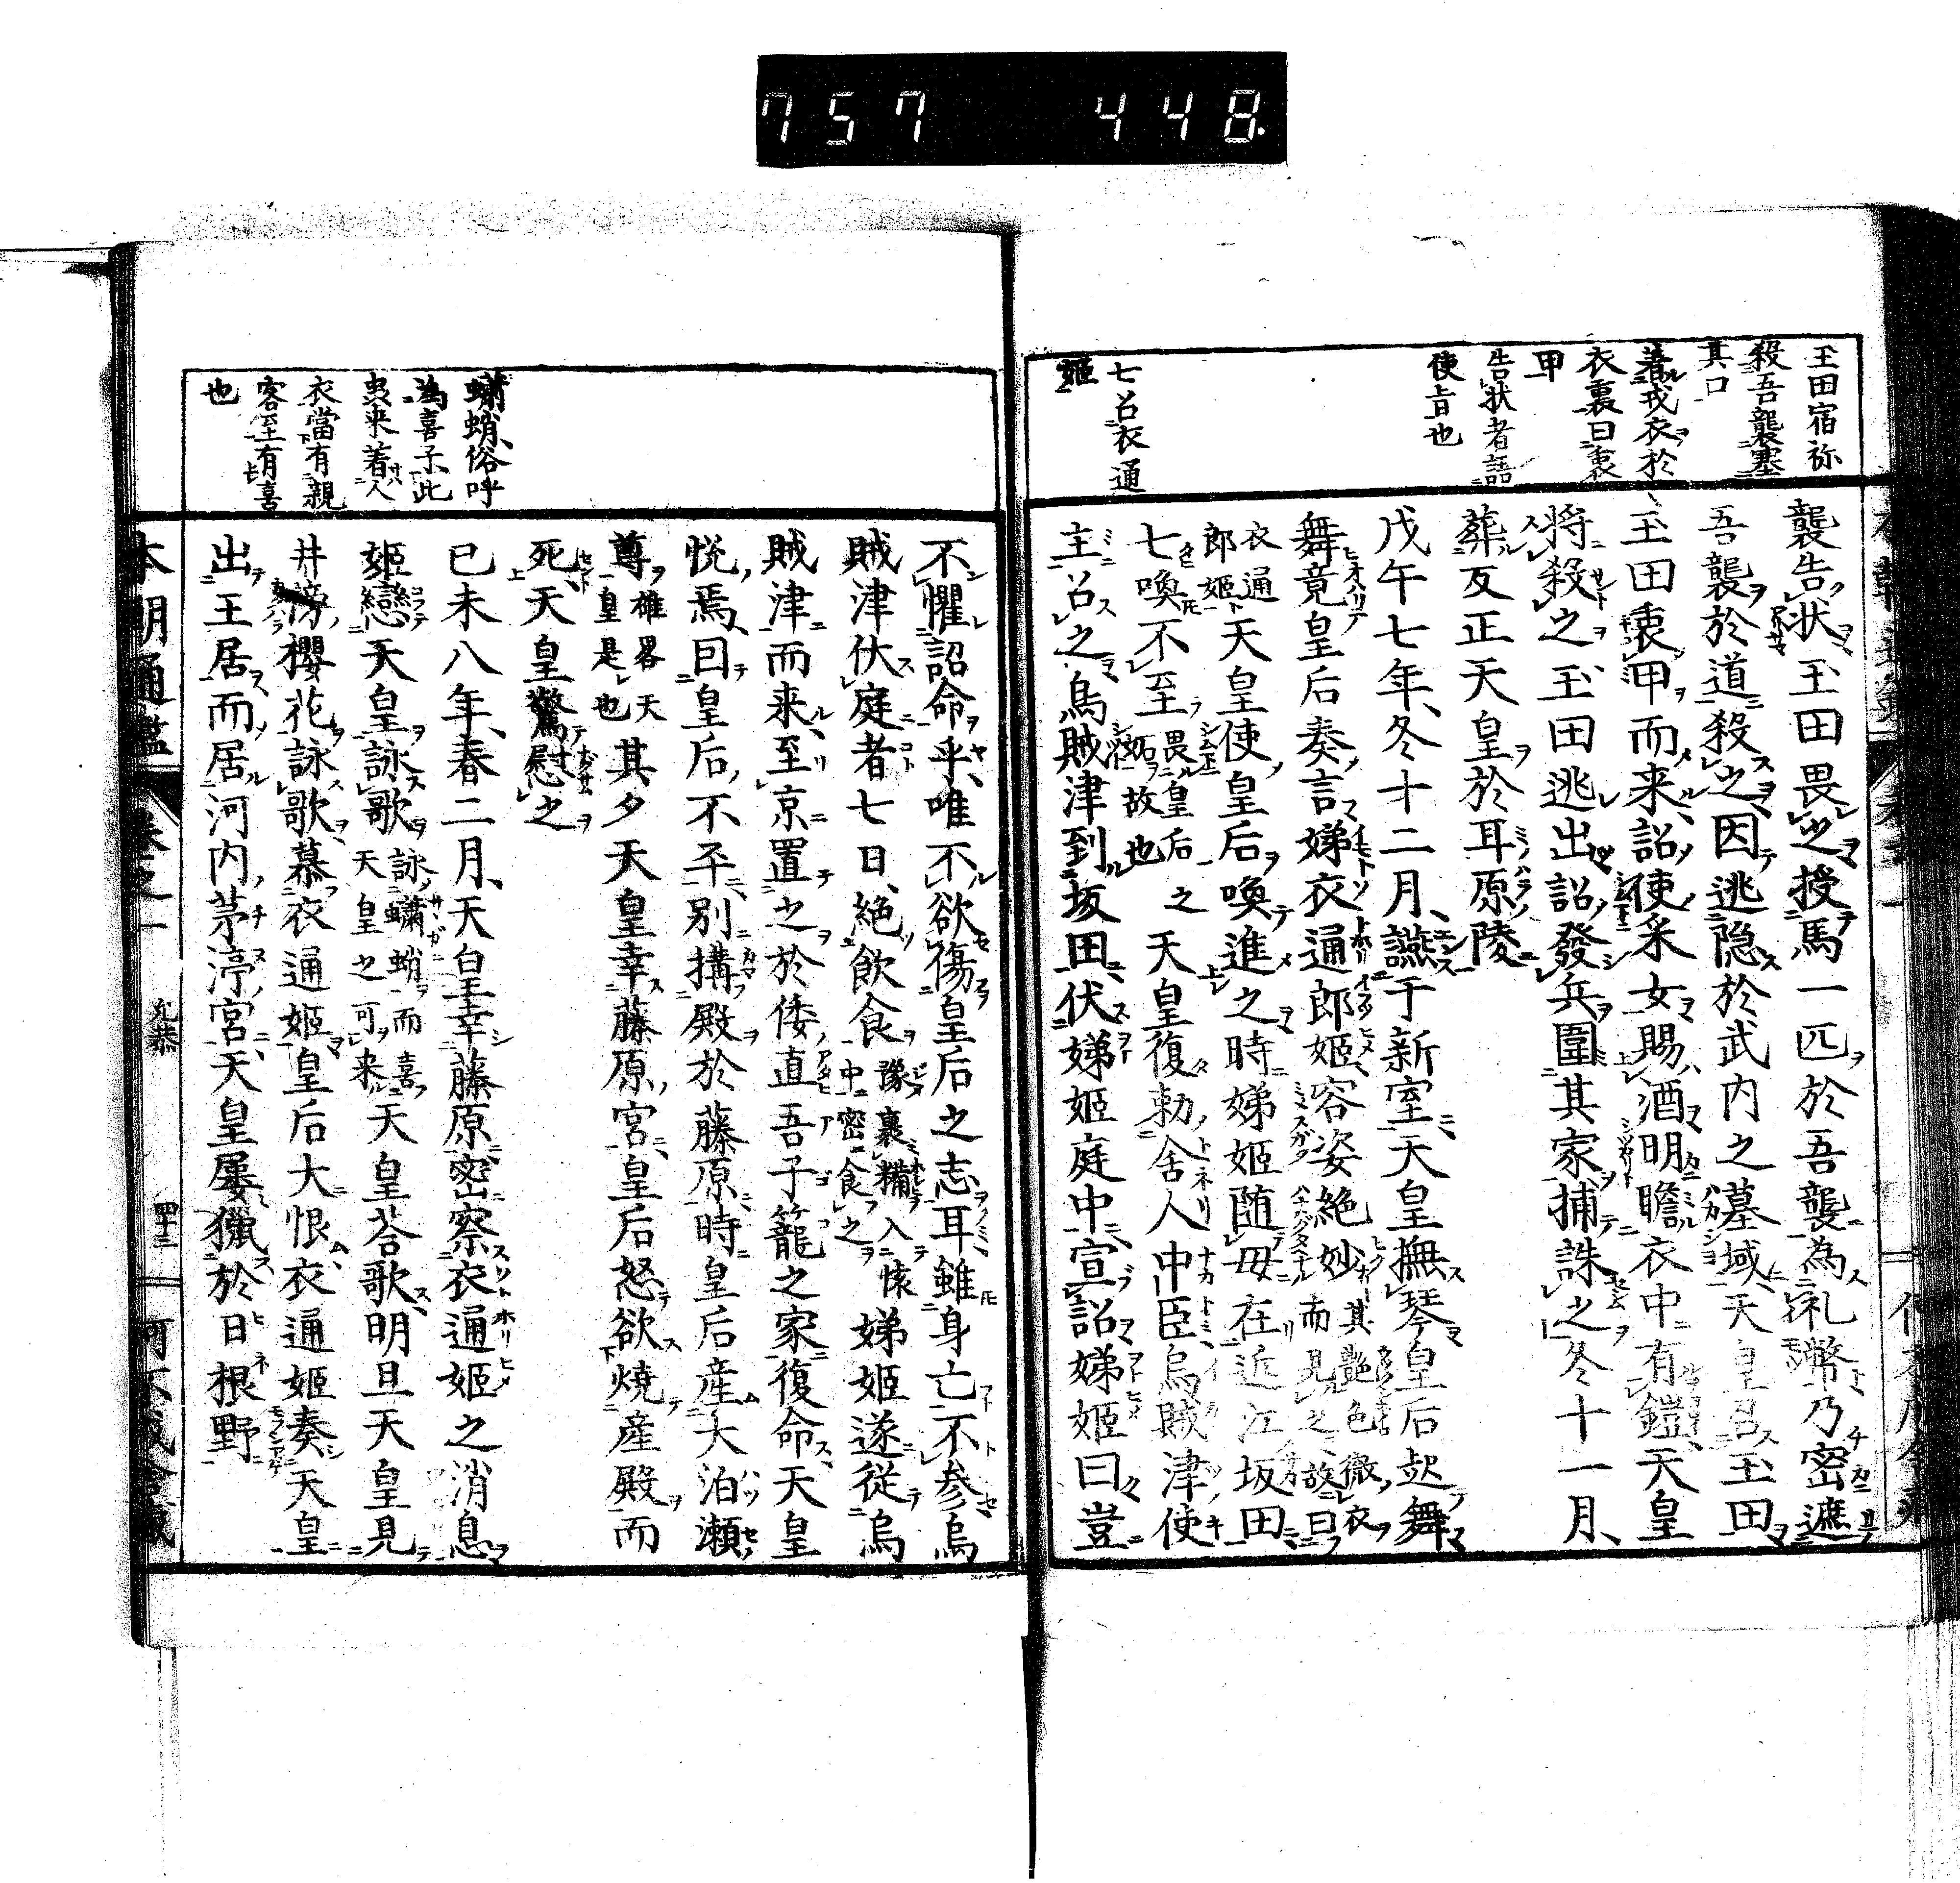 757 448.
玉田宿祢
殺吾襲塞
其口
著戎衣於
衣裏曰衷
甲
告狀者語
使旨也
七召衣通
姬
襲告狀玉田畏之授馬一匹於吾襲為礼幣乃密遮
吾襲於道殺之因逃隐於武内之墓域天皇召玉田
玉田衷甲而来詔使釆女賜酒明瞻衣中有鎧天皇
将殺之玉田逃出詔發兵圍其家捕誅之冬十一月
葬反正天皇於耳原陵
戊午七年冬十二月讌于新室天皇撫琴皇后起舞
舞竟皇后奏言娣衣通郎姬容姿絶妙其艶色徹衣而見之故曰
衣通郎姬天皇使皇后喚進之時娣姬随母在近江坂田
七喚不至畏皇后之妬故也天皇復勅舎人中臣烏賊津使
主召之烏賊津到坂田伏娣姬庭中宣詔娣姬曰豈
不懼詔命乎唯不欲傷皇后之志耳雖身亡不参烏
賊津伏庭者七日絶飲食豫裹糒入懐中密食之娣姬遂従烏
賊津而来至京置之於倭直吾子籠之家復命天皇
悦焉因皇后不平別搆殿於藤原時皇后産大泊瀬
尊雄畧天皇是也其夕天皇幸藤原宮皇后怒欲焼産殿而
死天皇驚慰之
已未八年春二月天皇幸藤原密察衣通姬之消息
姬戀天皇詠歌詠蟰蛸而喜天皇之可来天皇荅歌明旦天皇見
井傍櫻花詠歌慕衣通姬皇后大恨衣通姬奏天皇
出王居而居河内茅渟宮天皇屡獵於日根野
蟰蛸俗呼
為喜子此
虫来着人
衣當有親
客至有喜
也
本朝通鑑 卷之一 允恭 四十二